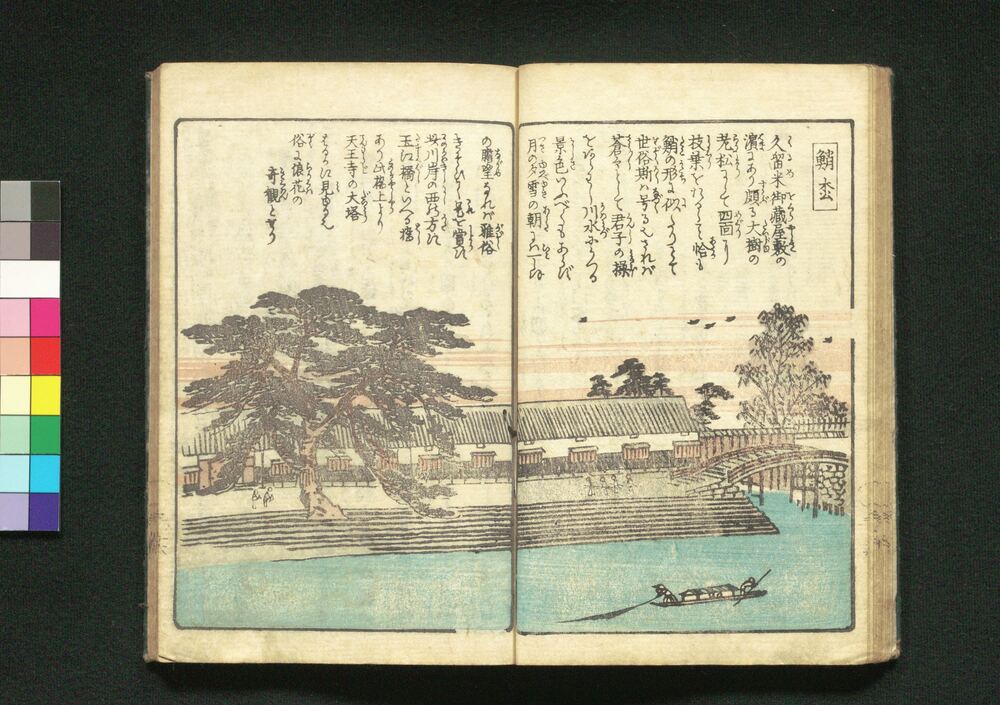 鮹松
久留米御蔵屋敷の
濵にあり頗る大樹の
老松にして四面に
枝葉をたれて恰も
鮹の形に似たりとて
世俗斯ハ号るとされバ
蒼々として君子の操
をあらハし川水にうつる
景色いふべくもあらず
月の夕雪の朝
の眺望なれバ雅俗
こゝを賞す
川岸の西の方に
玉江橋といへる橋
あり此橋上より
天王寺の大塔
はるかに見ゆるを
俗に浪花の
奇観とせり